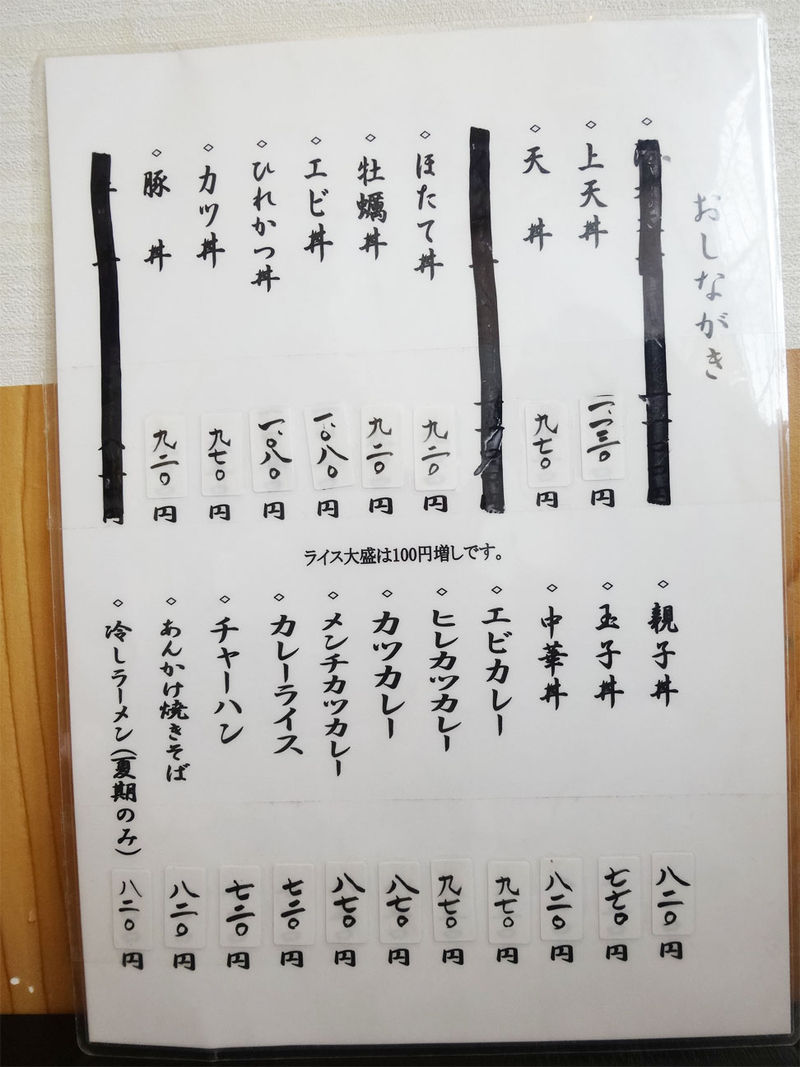 おしながき
◇上天丼 一、一三〇円
◇天丼 九七〇円
◇ほたて丼 九二〇円
◇牡蠣丼 九二〇円
◇エビ丼 一、〇八〇円
◇ひれかつ丼 一、〇八〇円
◇カツ丼 九七〇円
◇豚丼 九二〇円
円
ライス大盛は100円増しです。
◇親子丼 八二〇円
◇玉子丼 七七〇円
◇中華丼 八二〇円
◇エビカレー 九七〇円
◇ヒレカツカレー 九七〇円
◇カツカレー 八七〇円
◇メンチカツカレー 八七〇円
◇カレーライス 七二〇円
◇チャーハン 七二〇円
◇あんかけ焼きそば 八二〇円
◇冷しラーメン(夏期のみ) 八二〇円